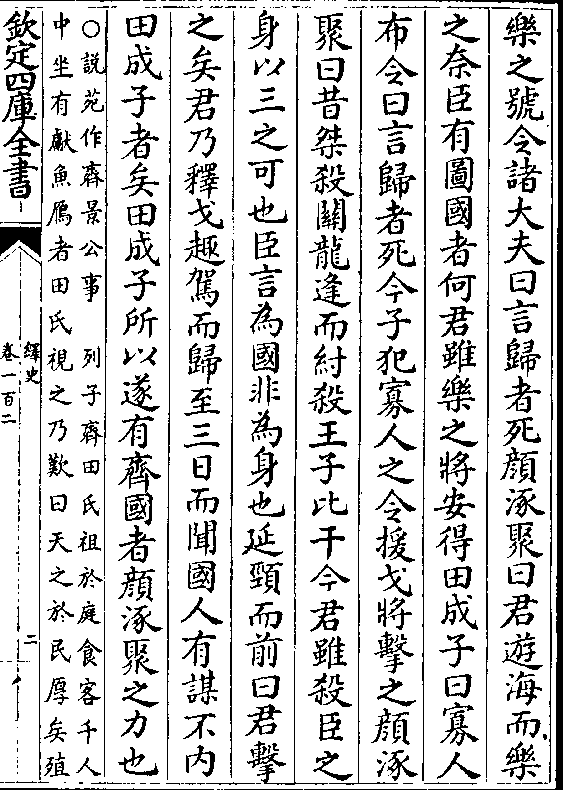 樂之號令諸大夫曰言歸者死顔涿聚曰君遊海而樂
之奈臣有圖國者何君雖樂之將安得田成子曰寡人
布令曰言歸者死今子犯寡人之令援戈將擊之顔涿
聚曰昔桀殺關龍逄而紂殺王子比干今君雖殺臣之
身以三之可也臣言為國非為身也延頸而前曰君擊
之矣君乃釋戈趣駕而歸至三日而聞國人有謀不内
田成子者矣田成子所以遂有齊國者顔涿聚之力也
○説苑作齊景公事 列子齊田氏祖於庭食客千人
中坐有獻魚鴈者田氏視之乃歎曰天之於民厚矣殖
欽定四庫全書
繹史
卷一百二
二